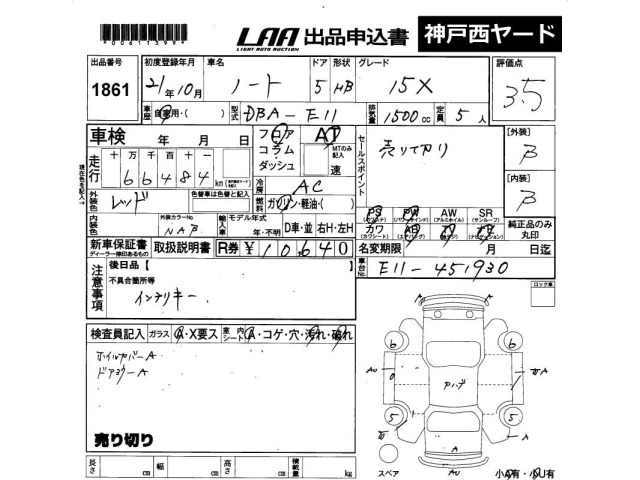 00611399
LAA 出品申込書 神戸西ヤード
LIGHT AUTO AUCTION
出品番号 初度登録年月 車名 ドア 形状 グレード 評価点
1861 21年10月 ノート 5 HB 15X 3.5
車歴 自家用・( ) 型式 DBA-E11 排気量 1500cc 定員 5人
車検 年 月 日 フロア AT セールスポイント 売り切り 【外装】
コラム MTのみ記入 B
走行 十 万 千 百 十 一 ダッシュ 速
現在色を記入→ 6 6 4 8 4 km 冷房 AC 【内装】
外装色 レッド 色替車は色替と記入 燃料 ガソリン・軽油・( ) B
PS PW AW SR
(パワステ) (パワーウィンド) (アルミホイル) (サンルーフ) 純正品のみ
内装色 外装カラーNo. NAB 輸入車 モデル年式 年・不明 D車・並 右H・左H カワ AB TV ナビ 丸印
(カワシート) (エアバッグ) (テレビ) (ナビゲーション)
新車保証書 取扱説明書 R券 ¥10640 名変期限 月 日迄
ディーラー捺印あるもの
注意事項 後日品【 】 車台No. E11-451930
不具合箇所等 ロック車
インテリキー
検査員記入 ガラス A・X要ス 室内シート A・コゲ・穴・汚れ・破れ
ホイルカバーA
ドアミラーA
6 6
AU 0 アルプ A
5 5
A
売り切り
長さ cm 幅 cm 高さ cm 積載量 kg スペア 小A有・小U有